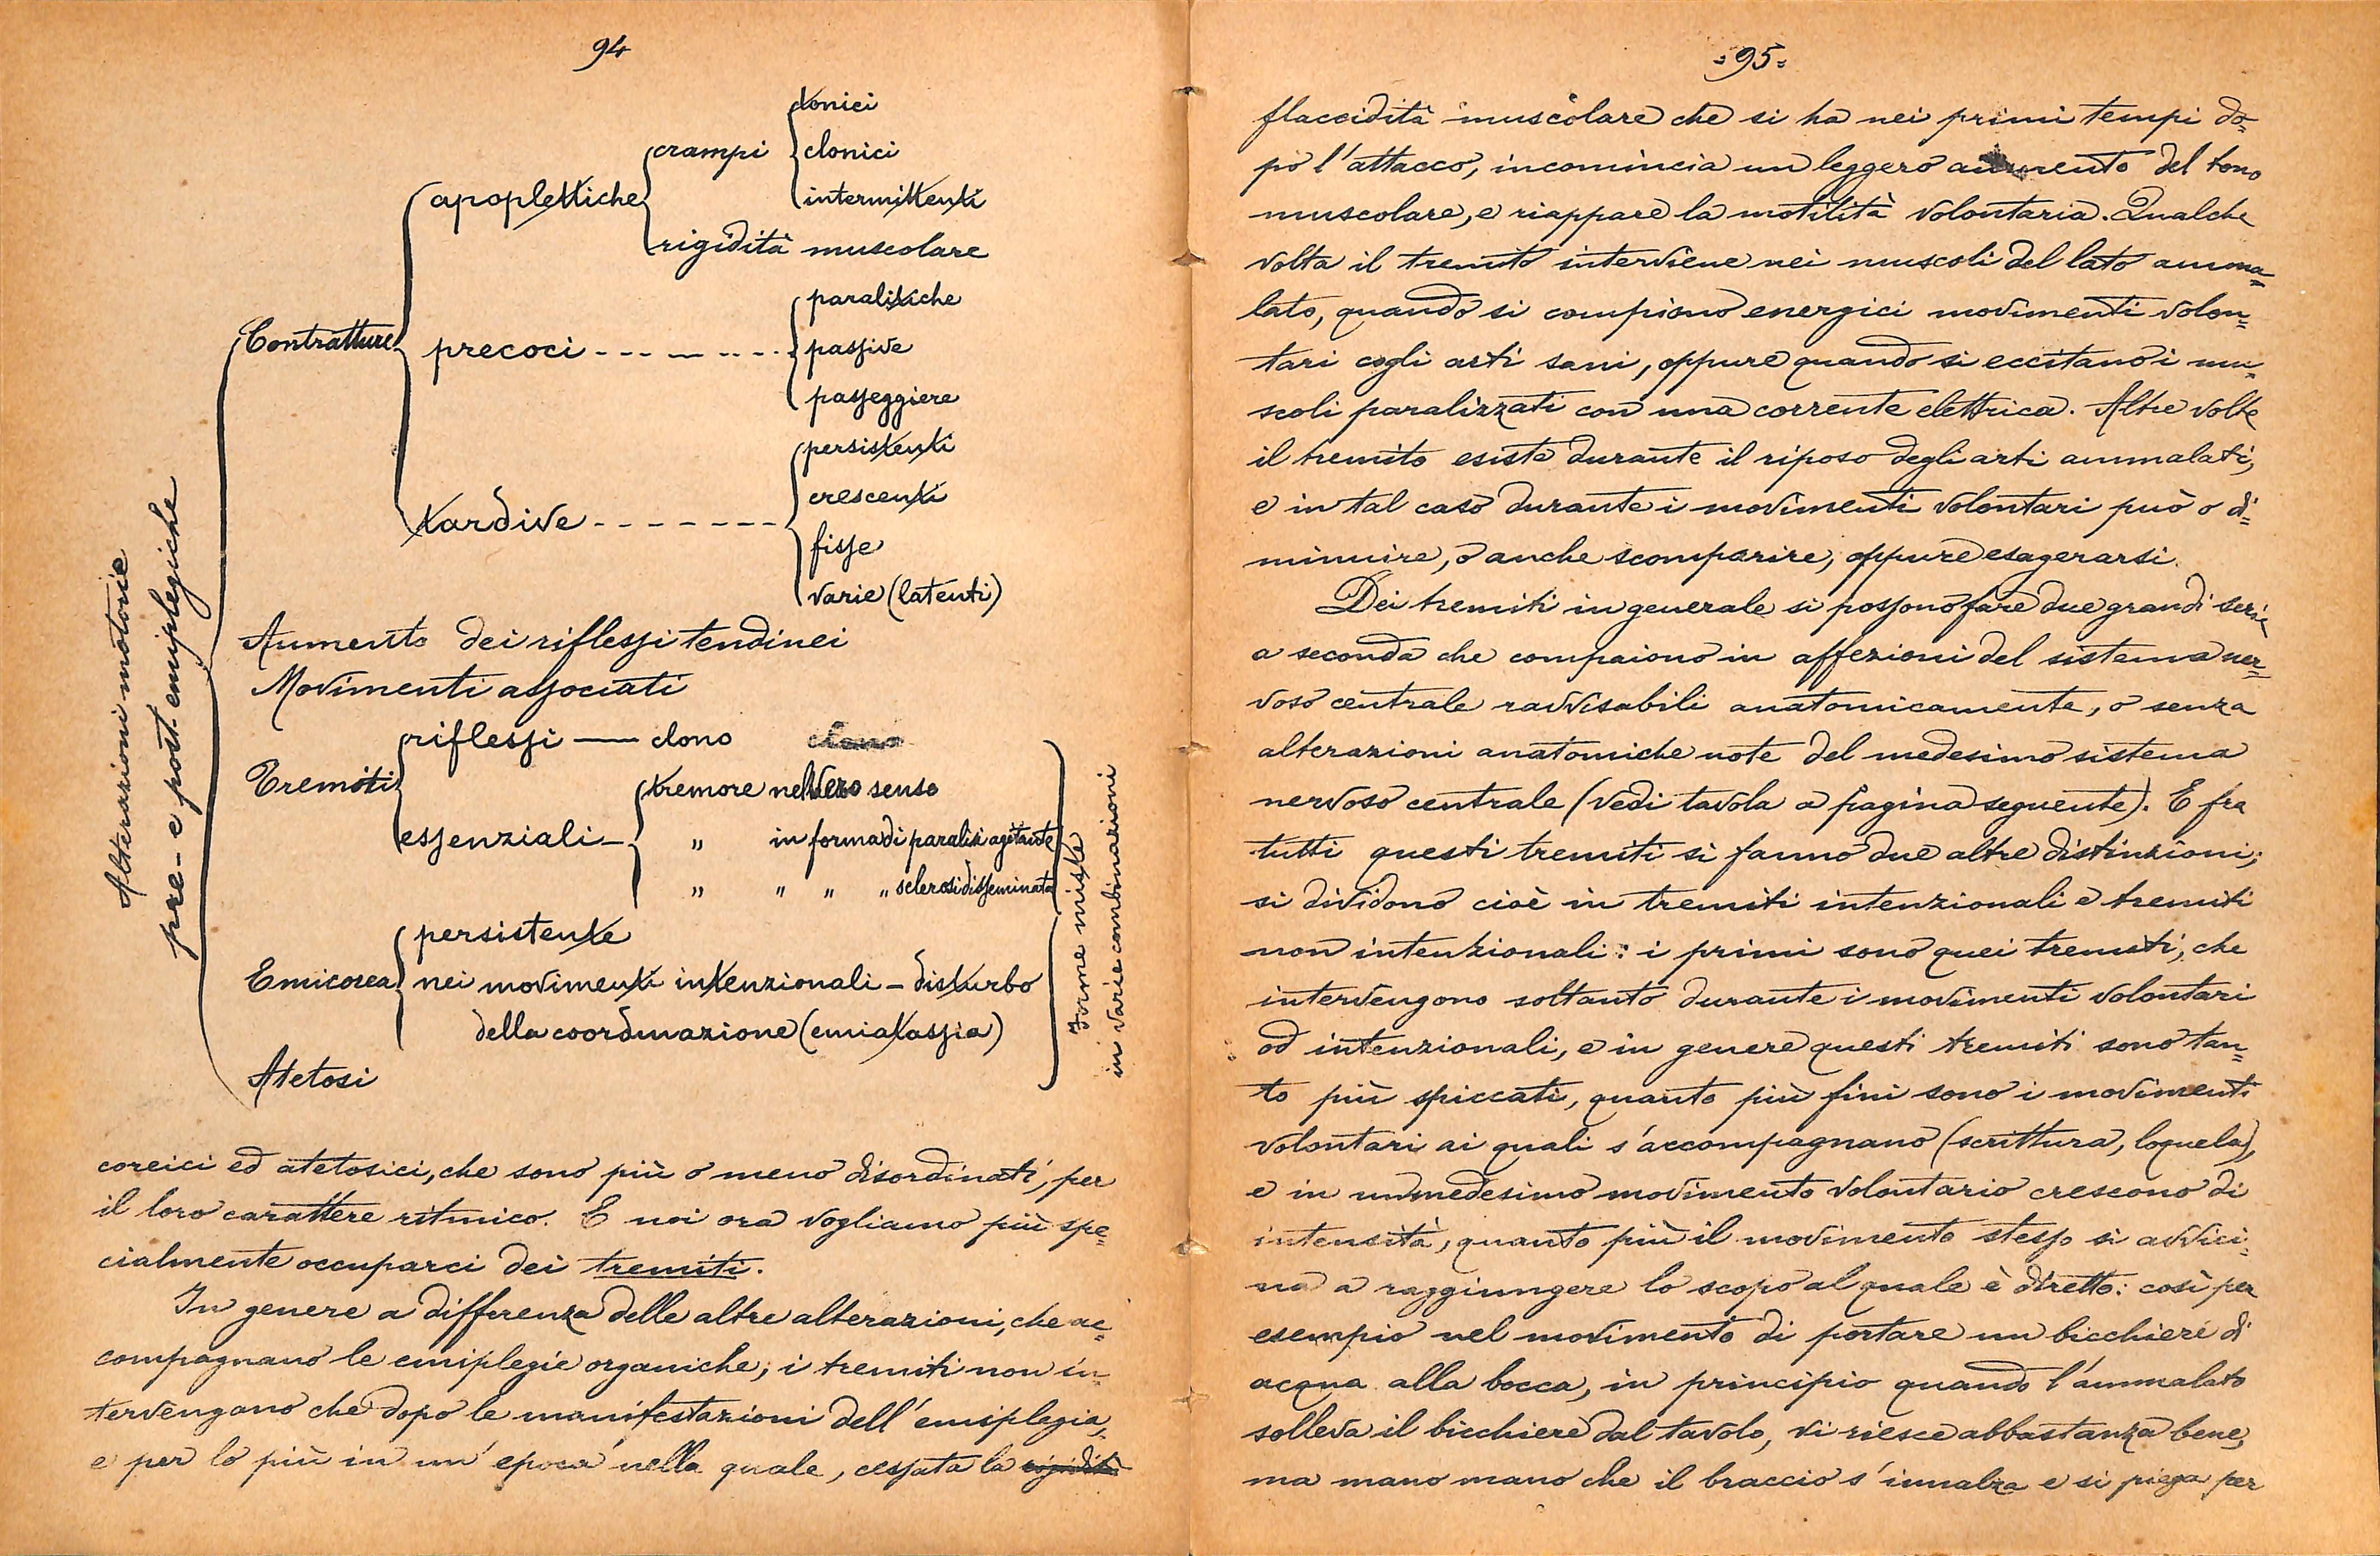 94
Alterazioni motorie
pre- e post. emiplegiche
Contratture
apoplettiche
crampi
tonici
clonici
intermittenti
rigidità muscolare
precoci
paralitiche
passive
passeggiere
tardive
persistenti
crescenti
fisse
varie (latenti)
Aumento dei riflessi tendinei
Movimenti associati
Tremiti
riflessi — clono
essenziali –
tremore nel vero senso
„ in forma di paralisi agitante
„ „ „ „ sclerosi disseminata
Emicorea
persistente
nei movimenti intenzionali – disturbo
della coordinazione (emiatassia)
Atetosi
Forme miste
in varie combinazioni
coreici ed atetosici, che sono più o meno disordinati, per
il loro carattere ritmico. E noi ora vogliamo più spe=
cialmente occuparci dei tremiti.
In genere a differenza delle altre alterazioni, che ac=
compagnano le emiplegie organiche, i tremiti non in=
tervengono che dopo le manifestazioni dell'emiplegia,
e per lo più in un'epoca nella quale, cessata la rigidità
=95=
flaccidità muscolare che si ha nei primi tempi do=
po l'attacco, incomincia un leggero aumento del tono
muscolare, e riappare la motilità volontaria. Qualche
volta il tremito interviene nei muscoli del lato amma=
lato, quando si compiono energici movimenti volon=
tari cogli arti sani, oppure quando si eccitano i mu=
scoli paralizzati con una corrente elettrica. Altre volte
il tremito esiste durante il riposo degli arti ammalati,
e in tal caso durante i movimenti volontari può o di=
minuire, o anche scomparire, oppure esagerarsi.
Dei tremiti in generale si possono fare due grandi serie
a seconda che compaiono in affezioni del sistema ner=
voso centrale ravvisabili anatomicamente, o senza
alterazioni anatomiche note del medesimo sistema
nervoso centrale (vedi tavola a pagina seguente). E fra
tutti questi tremiti si fanno due altre distinzioni;
si dividono cioè in tremiti intenzionali e tremiti
non intenzionali: i primi sono quei tremiti, che
intervengono soltanto durante i movimenti volontari
od intenzionali, e in genere questi tremiti sono tan=
to più spiccati, quanto più fini sono i movimenti
volontari ai quali s'accompagnano (scrittura, loquela),
e in un medesimo movimento volontario crescono di
intensità, quanto più il movimento stesso si avvici=
na a raggiungere lo scopo al quale è diretto: così per
esempio nel movimento di portare un bicchiere di
acqua alla bocca, in principio quando l'ammalato
solleva il bicchiere dal tavolo, vi riesce abbastanza bene,
ma mano mano che il braccio s'innalza e si piega per